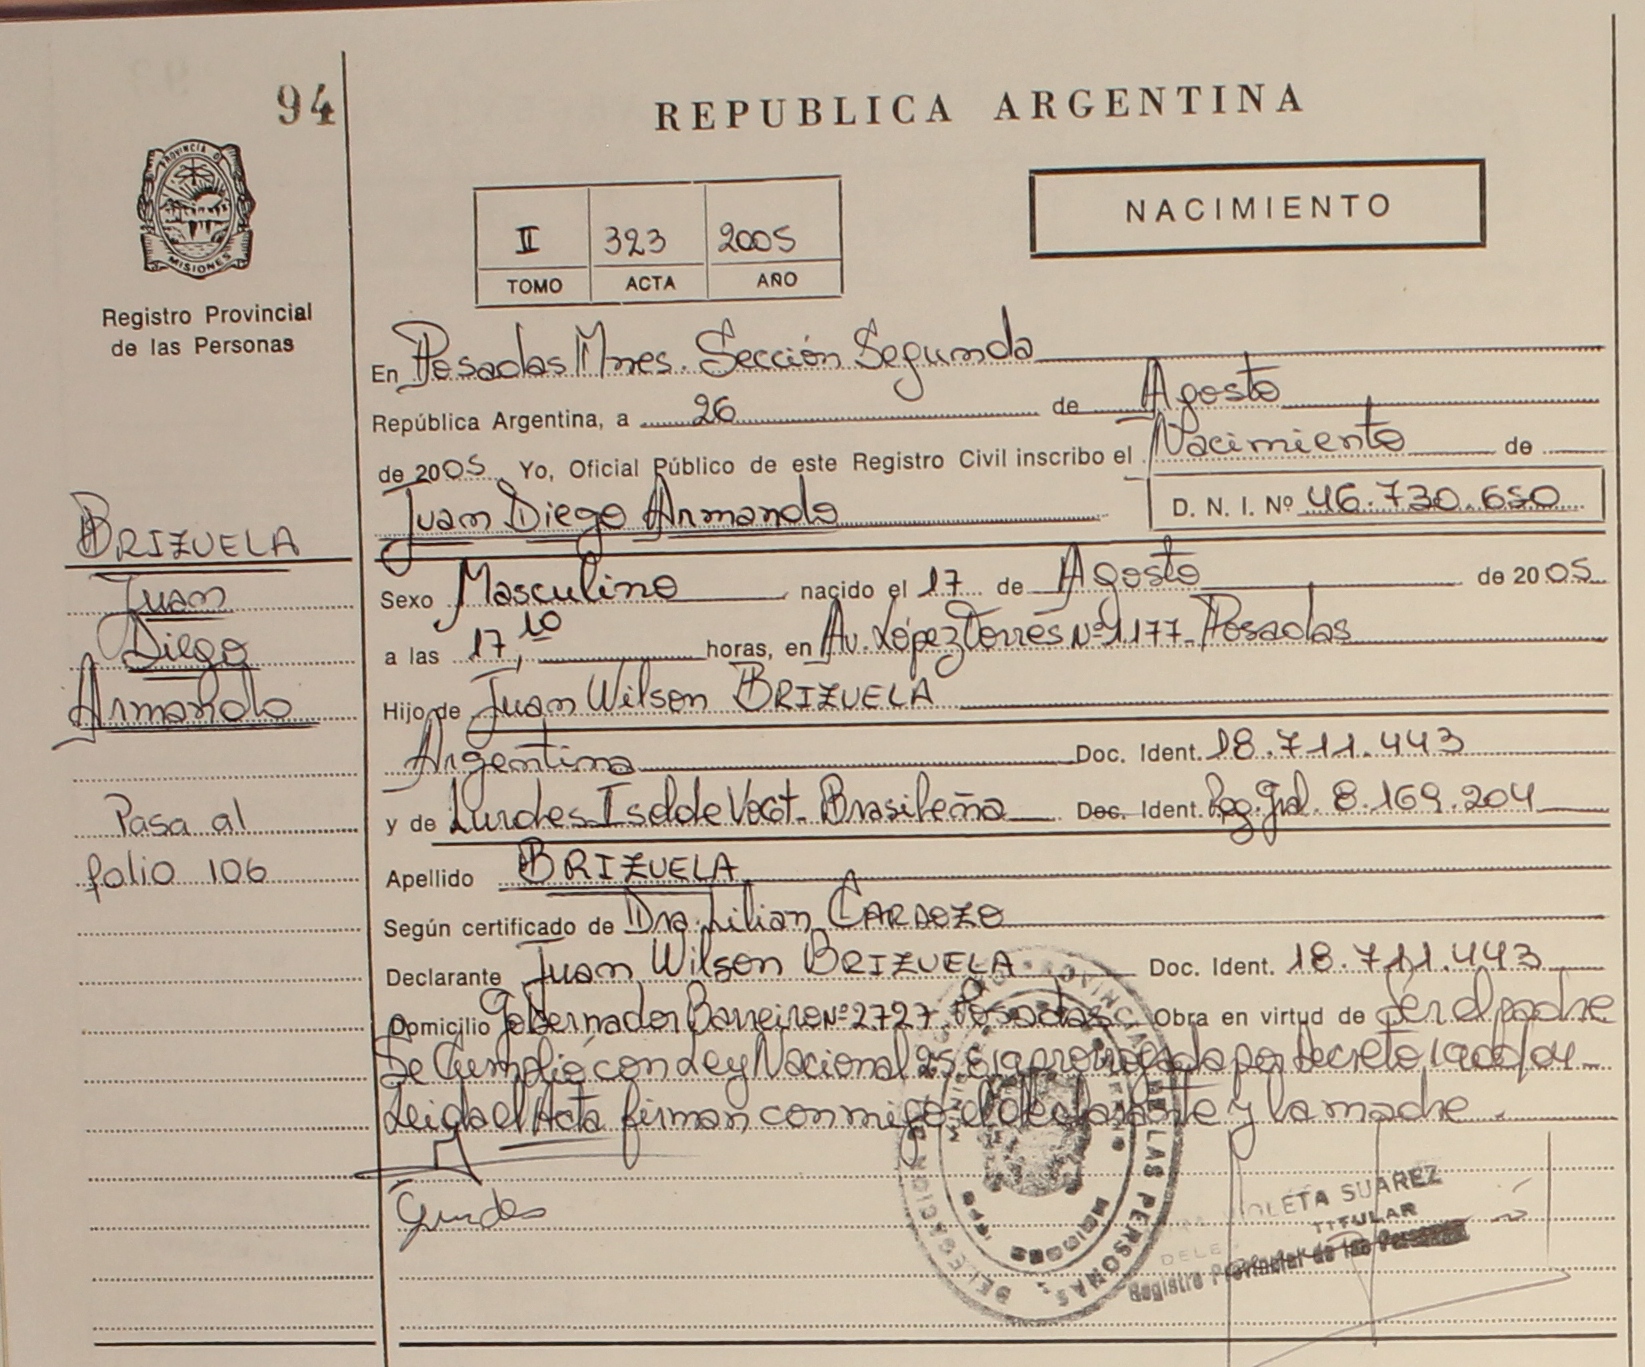 94
REPUBLICA ARGENTINA
PROVINCIA DE
MISIONES
NACIMIENTO
II 323 2005
TOMO ACTA AÑO
Registro Provincial
de las Personas
En Posadas Mnes. Sección Segunda
República Argentina, a 26 de Agosto
de 2005 Yo, Oficial Público de este Registro Civil inscribo el Nacimiento de
Juan Diego Armando D. N. I. Nº 46.730.650
BRIZUELA
Juan
Diego
Armando
Sexo Masculino nacido el 17 de Agosto de 2005
a las 17,10 horas, en Av. López Torres Nº 1177- Posadas
Hijo de Juan Wilson BRIZUELA
Argentina Doc. Ident. 18.711.443
Pasa al
folio 106
y de Lurdes Isolde Vogt- Brasileña Doc. Ident. Reg. Gral. 8.169.204
Apellido BRIZUELA
Según certificado de Dra. Lilian CARDOZO
Declarante Juan Wilson BRIZUELA Doc. Ident. 18.711.443
Domicilio Gobernador Barreiro Nº 2727 Posadas Obra en virtud de Ser el padre
Se Cumplió con Ley Nacional promulgada por decreto 1900/04
Leida el Acta firman conmigo el declarante y la madre.
VIOLETA SUAREZ
TITULAR
Registro Provincial de las Personas
DELEGACION
LAS PERSONAS
MISIONES